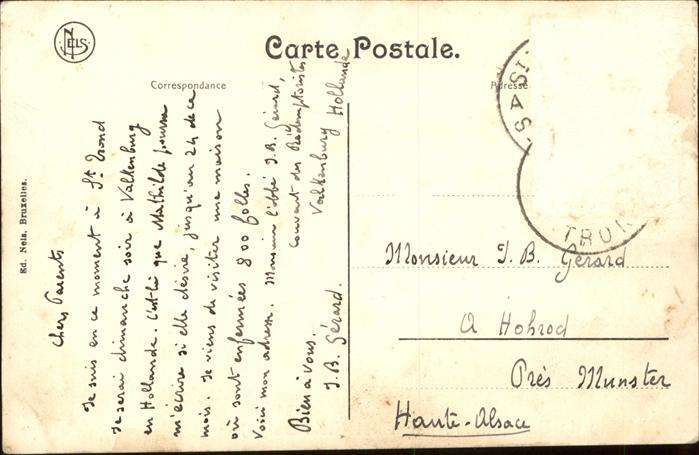 NELS
Carte Postale.
Correspondance
Adresse
Ed. Nels, Bruxelles.
Chers Parents
Je suis en ce moment à St Trond
Je serai dimanche soir à Valkenburg
en Hollande. C'est là que Mathilde pourra
m'écrire si elle désire, jusqu'au 24 de ce
mois. Je viens de visiter une maison
où sont enfermées 800 folles.
Voici mon adresse. Monsieur l'abbé J. B. Gérard,
couvent des Rédemptoristes
Valkenburg Hollande
Bien à vous,
J. B. Gérard.
TRUI
Monsieur J. B. Gérard
A Hohrod
Près Munster
Haute-Alsace